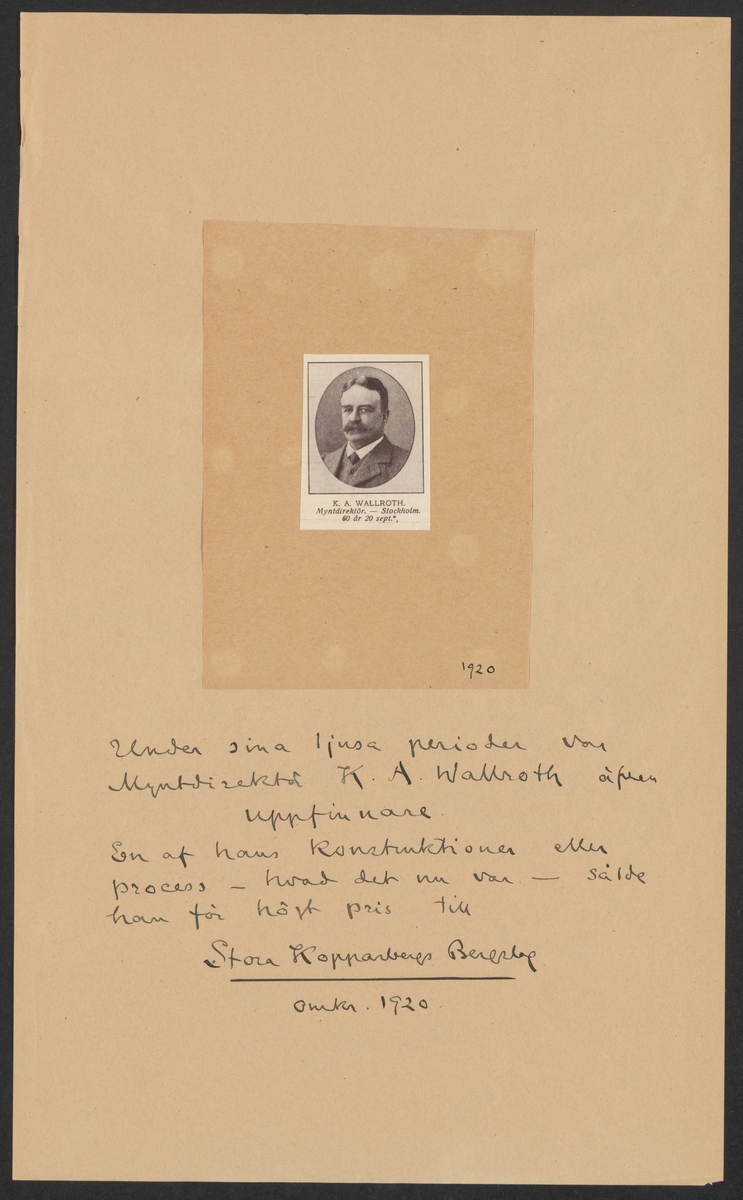 K. A. WALLROTH.
Myntdirektör. — Stockholm.
60 år 20 sept.*.
1920
Under sina ljusa perioder var
Myntdirektör K. A. Wallroth äfven
uppfinnare.
En af hans konstruktioner eller
process – hvad det nu var. — sålde
han för högt pris till
Stora Kopparbergs Bergslag
omkr. 1920.